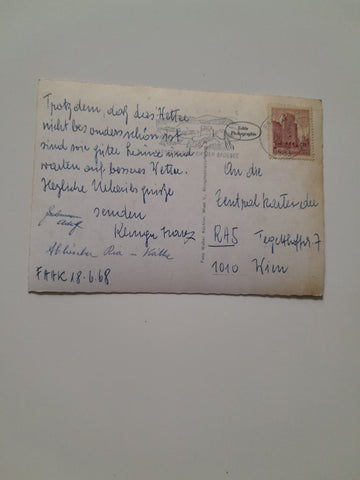 Trotzdem, daß das Wetter
nicht besonders schön ist
sind wir guter Laune und
warten auf besseres Wetter.
Herzliche Urlaubsgrüße
senden
Adolf
Ria u Käthe
FAAK 18.6.68
Echte
Photographie
An die
Zentralkartei der
RAS Tegetthoffstr. 7
1010 Wien